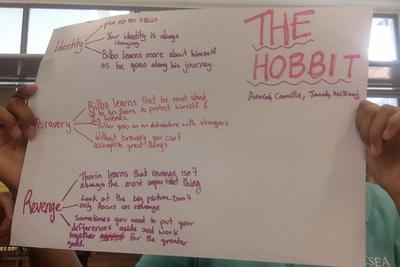 THE
HOBBIT
Camille, Jacob,
Identity
Your identity is always
changing.
Bilbo learns more about himself
as he goes along his journey.
Bravery
Bilbo learns that he must stand
up to his fears to protect himself &
friends.
Bilbo goes on an adventure with strangers
Without bravery you can't
accomplish great things
Revenge
Thorin learns that revenge isn't
always the most important thing
Look at the big picture. Don't
only focus on revenge
Sometimes you need to put your
differences aside and work
together for the greater
good.